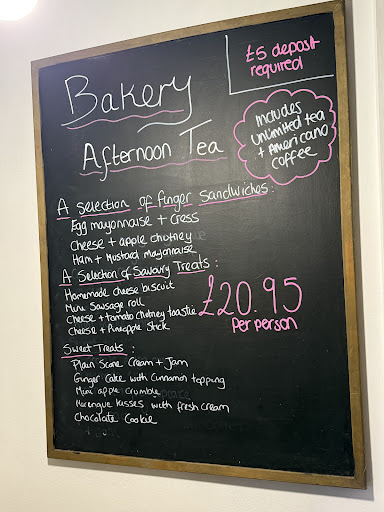 Bakery
Afternoon Tea
£5 deposit
required
Includes
Unlimited tea
+ Americano
coffee
A selection of finger sandwiches:
Egg mayonnaise + cress
Cheese + apple chutney
Ham + Mustard mayonnaise
A Selection of Savoury Treats:
Homemade cheese biscuit
Mini Sausage roll
Cheese + tomato chutney toastie
Cheese + Pineapple Stick
£20.95
Per person
Sweet Treats:
Plain Scone Cream + Jam
Ginger Cake with Cinnamon topping
Mini apple crumble
Merengue kisses with fresh cream
Chocolate Cookie